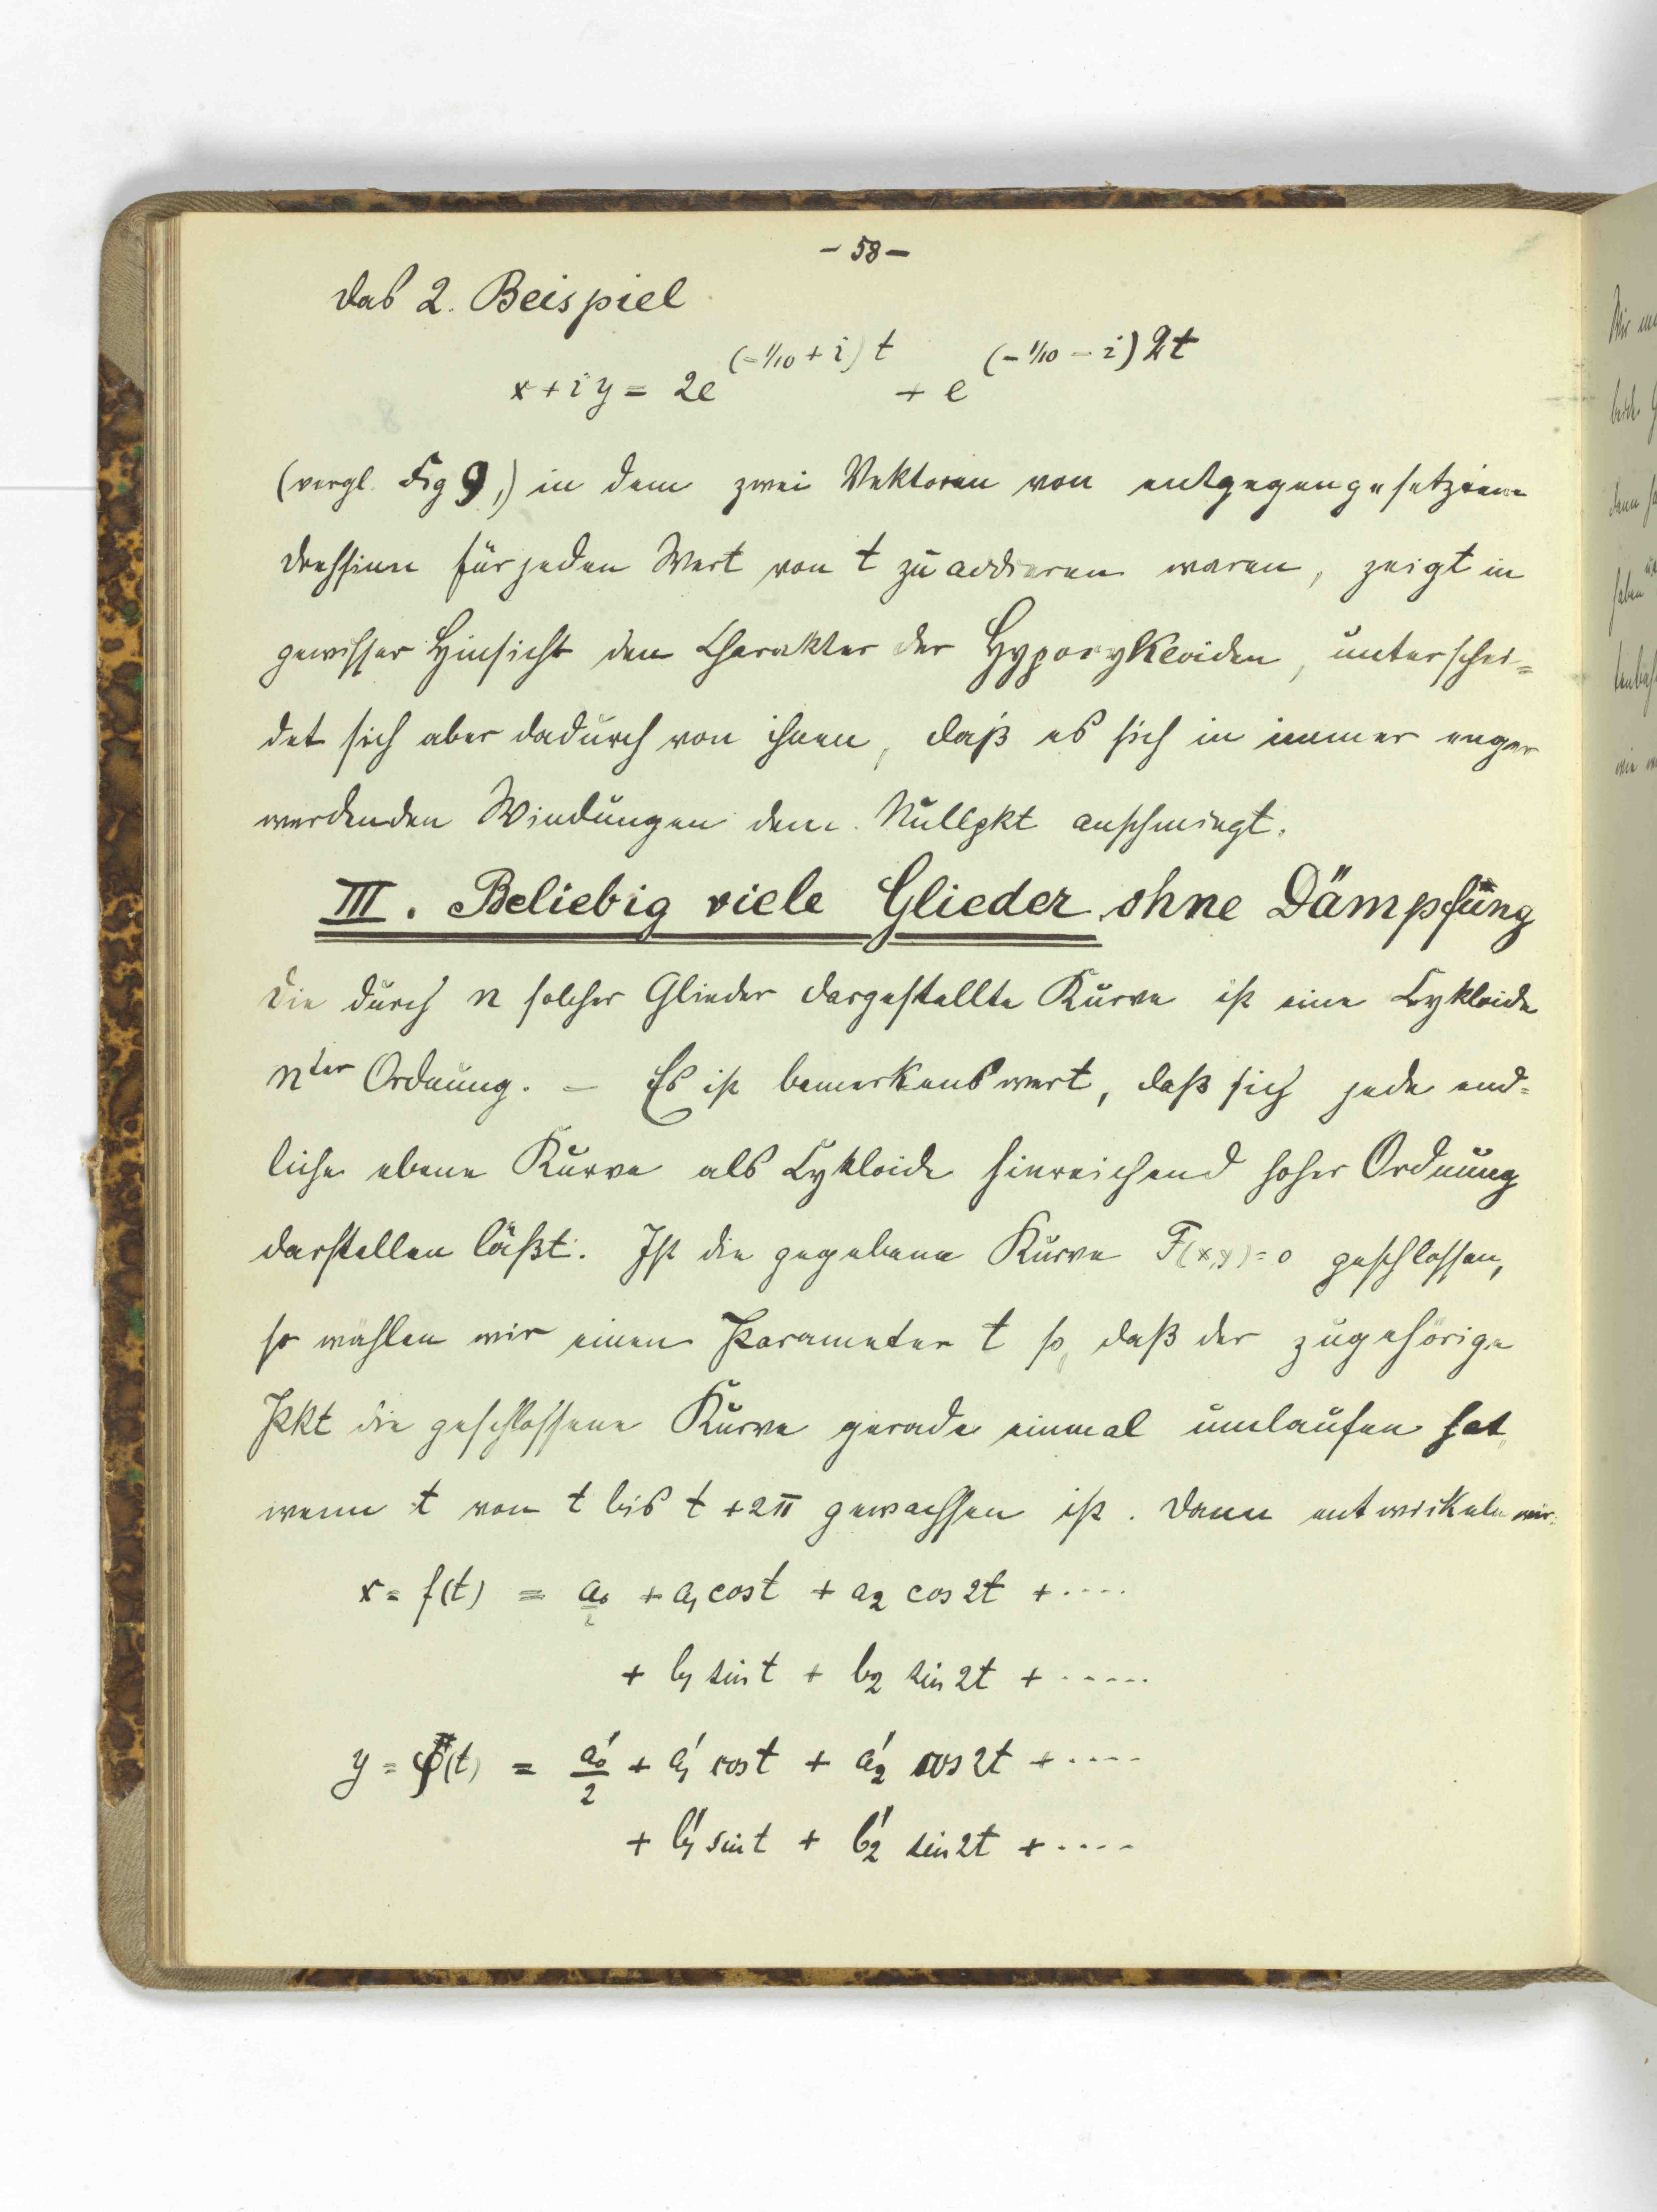 - 58 -
Das 2. Beispiel
x + iy = 2e^{(-1/10 + i) t} + e^{(-1/10 - i) 2t}
(vergl. Fig 9,) in dem zwei Vektoren von entgegengesetztem
Drehsinn für jeden Wert von t zu addieren waren, zeigt in
gewisser Hinsicht den Charakter der Hypozykloiden, unterschei=
det sich aber dadurch von ihnen, daß es sich in immer enger
werdenden Windungen dem Nullpkt anschmiegt.
III. Beliebig viele Glieder ohne Dämpfung
Die durch n solcher Glieder dargestellte Kurve ist eine Cykloide
nter Ordnung. – Es ist bemerkenswert, daß sich jede end=
liche ebene Kurve als Cykloide hinreichend hoher Ordnung
darstellen läßt. Ist die gegebene Kurve F(x,y)=0 geschlossen,
so wählen wir einen Parameter t so, daß der zugehörige
Pkt die geschlossene Kurve gerade einmal umlaufen hat,
wenn t von t bis t + 2π gewachsen ist. Dann entwickeln wir:
x = f(t) = a₀/2 + a₁ cos t + a₂ cos 2t + ....
+ b₁ sin t + b₂ sin 2t + ......
y = φ(t) = a₀'/2 + a₁' cos t + a₂' cos 2t + ....
+ b₁' sin t + b₂' sin 2t + ....